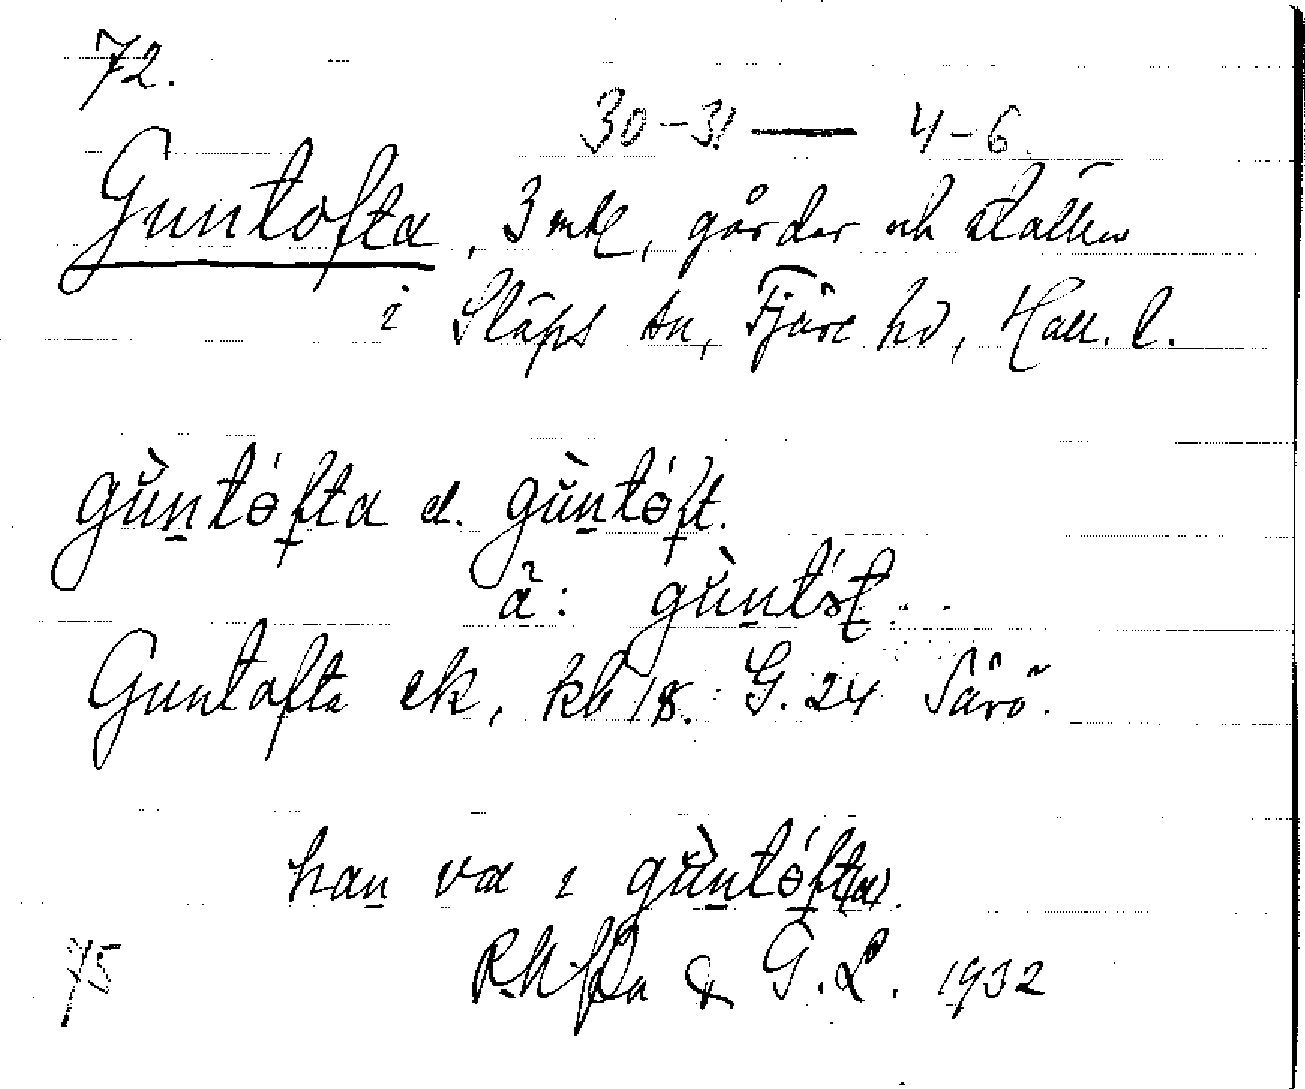 72.
30-31 — 4-6.
Guntofta, 3 mtl, gårdar och
i Släps sn, Fjäre hd, Hall. l.
gùntófta el. gùntóft.
ä: gùntóst.
Guntofta ek, kb 18. G. 24 Särö.
han va i gùntóft(a).
& G. L. 1932
75